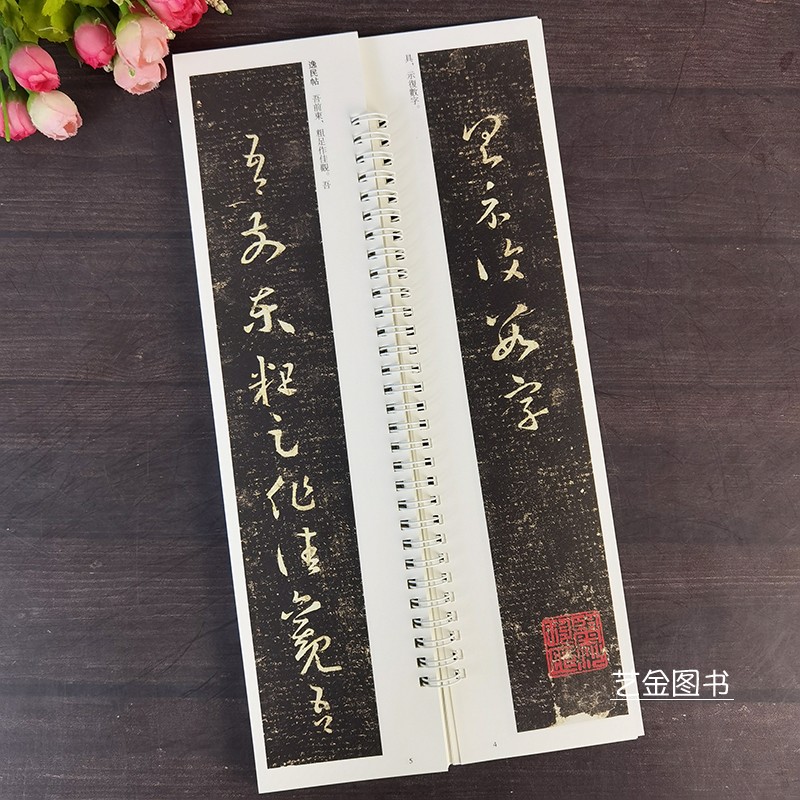 具，示復數字。
具示復數字
4
逸民帖 吾前東，粗足作佳觀。吾
吾前東粗足作佳觀吾
5
艺金图书